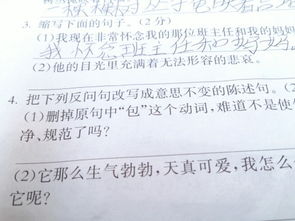 3. 缩写下面的句子。(2 分)
(1)我现在非常怀念我的那位班主任和我的妈
我怀念班主任和妈妈。
(2)他的目光里充满着无法形容的悲哀。
4. 把下列反问句改写成意思不变的陈述句。(
(1)删掉原句中“包”这个动词,难道不是使
净、规范了吗?
(2)它那么生气勃勃,天真可爱,我怎么
它呢?